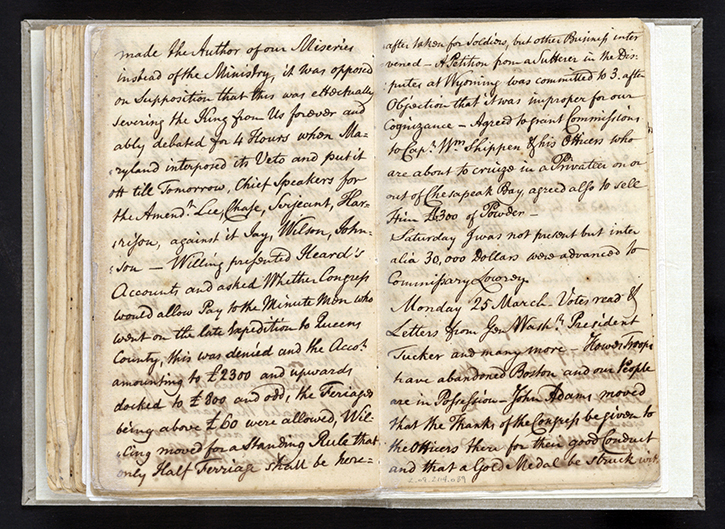 made the Author of our Miseries
instead of the Ministry, it was opposed
on Supposition that this was effectually
severing the King from Us forever and
ably debated for 4 Hours when Ma-
ryland interposed its Veto and put it
off till Tomorrow, Chief Speakers for
the Amendt. Lee, Chase, Serjeant, Har-
rison, against it Jay, Wilson, John-
son — Willing presented Heard's
Accounts and asked Whether Congress
would allow Pay to the Minute Men who
went on the late Expedition to Queens
County, this was denied and the Acco.t
amounting to £2300 and upwards
docked to £800 and odd, the Ferriages
being above £60 were allowed, Wil-
ling moved for a Standing Rule that
only Half Ferriage shall be here-
after taken for Soldiers, but other Business inter
vened — A Petition from a Sufferer in the Dis-
putes at Wyoming was committed to 3. after
Objection that it was improper for our
Cognizance — Agreed to grant Commissions
to Capt. Wm Shippen & his Officers who
are about to cruize in a Privateer on or
out of Chesapeak Bay, agreed also to sell
him £300 of Powder —
Saturday I was not present but inter
alia 30,000 Dollars were advanced to
Commissary Lowrey.
Monday 25 March. Votes read &
Letters from Gen. Washn. President
Tucker and many more Howes Troops
have abandoned Boston and our People
are in Possession — John Adams moved
that the Thanks of the Congress be given to
the Officers there for their good Conduct
and that a Gold Medal be struck with